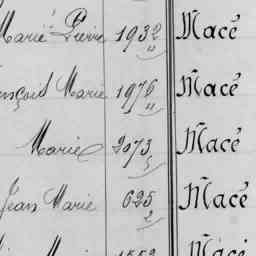 Marie Pierre 1932 Macé
„
ançois Marie 1976 Macé
„
Marie 2073 Macé
5
Jean Marie 625 Macé
2
1552 Macé